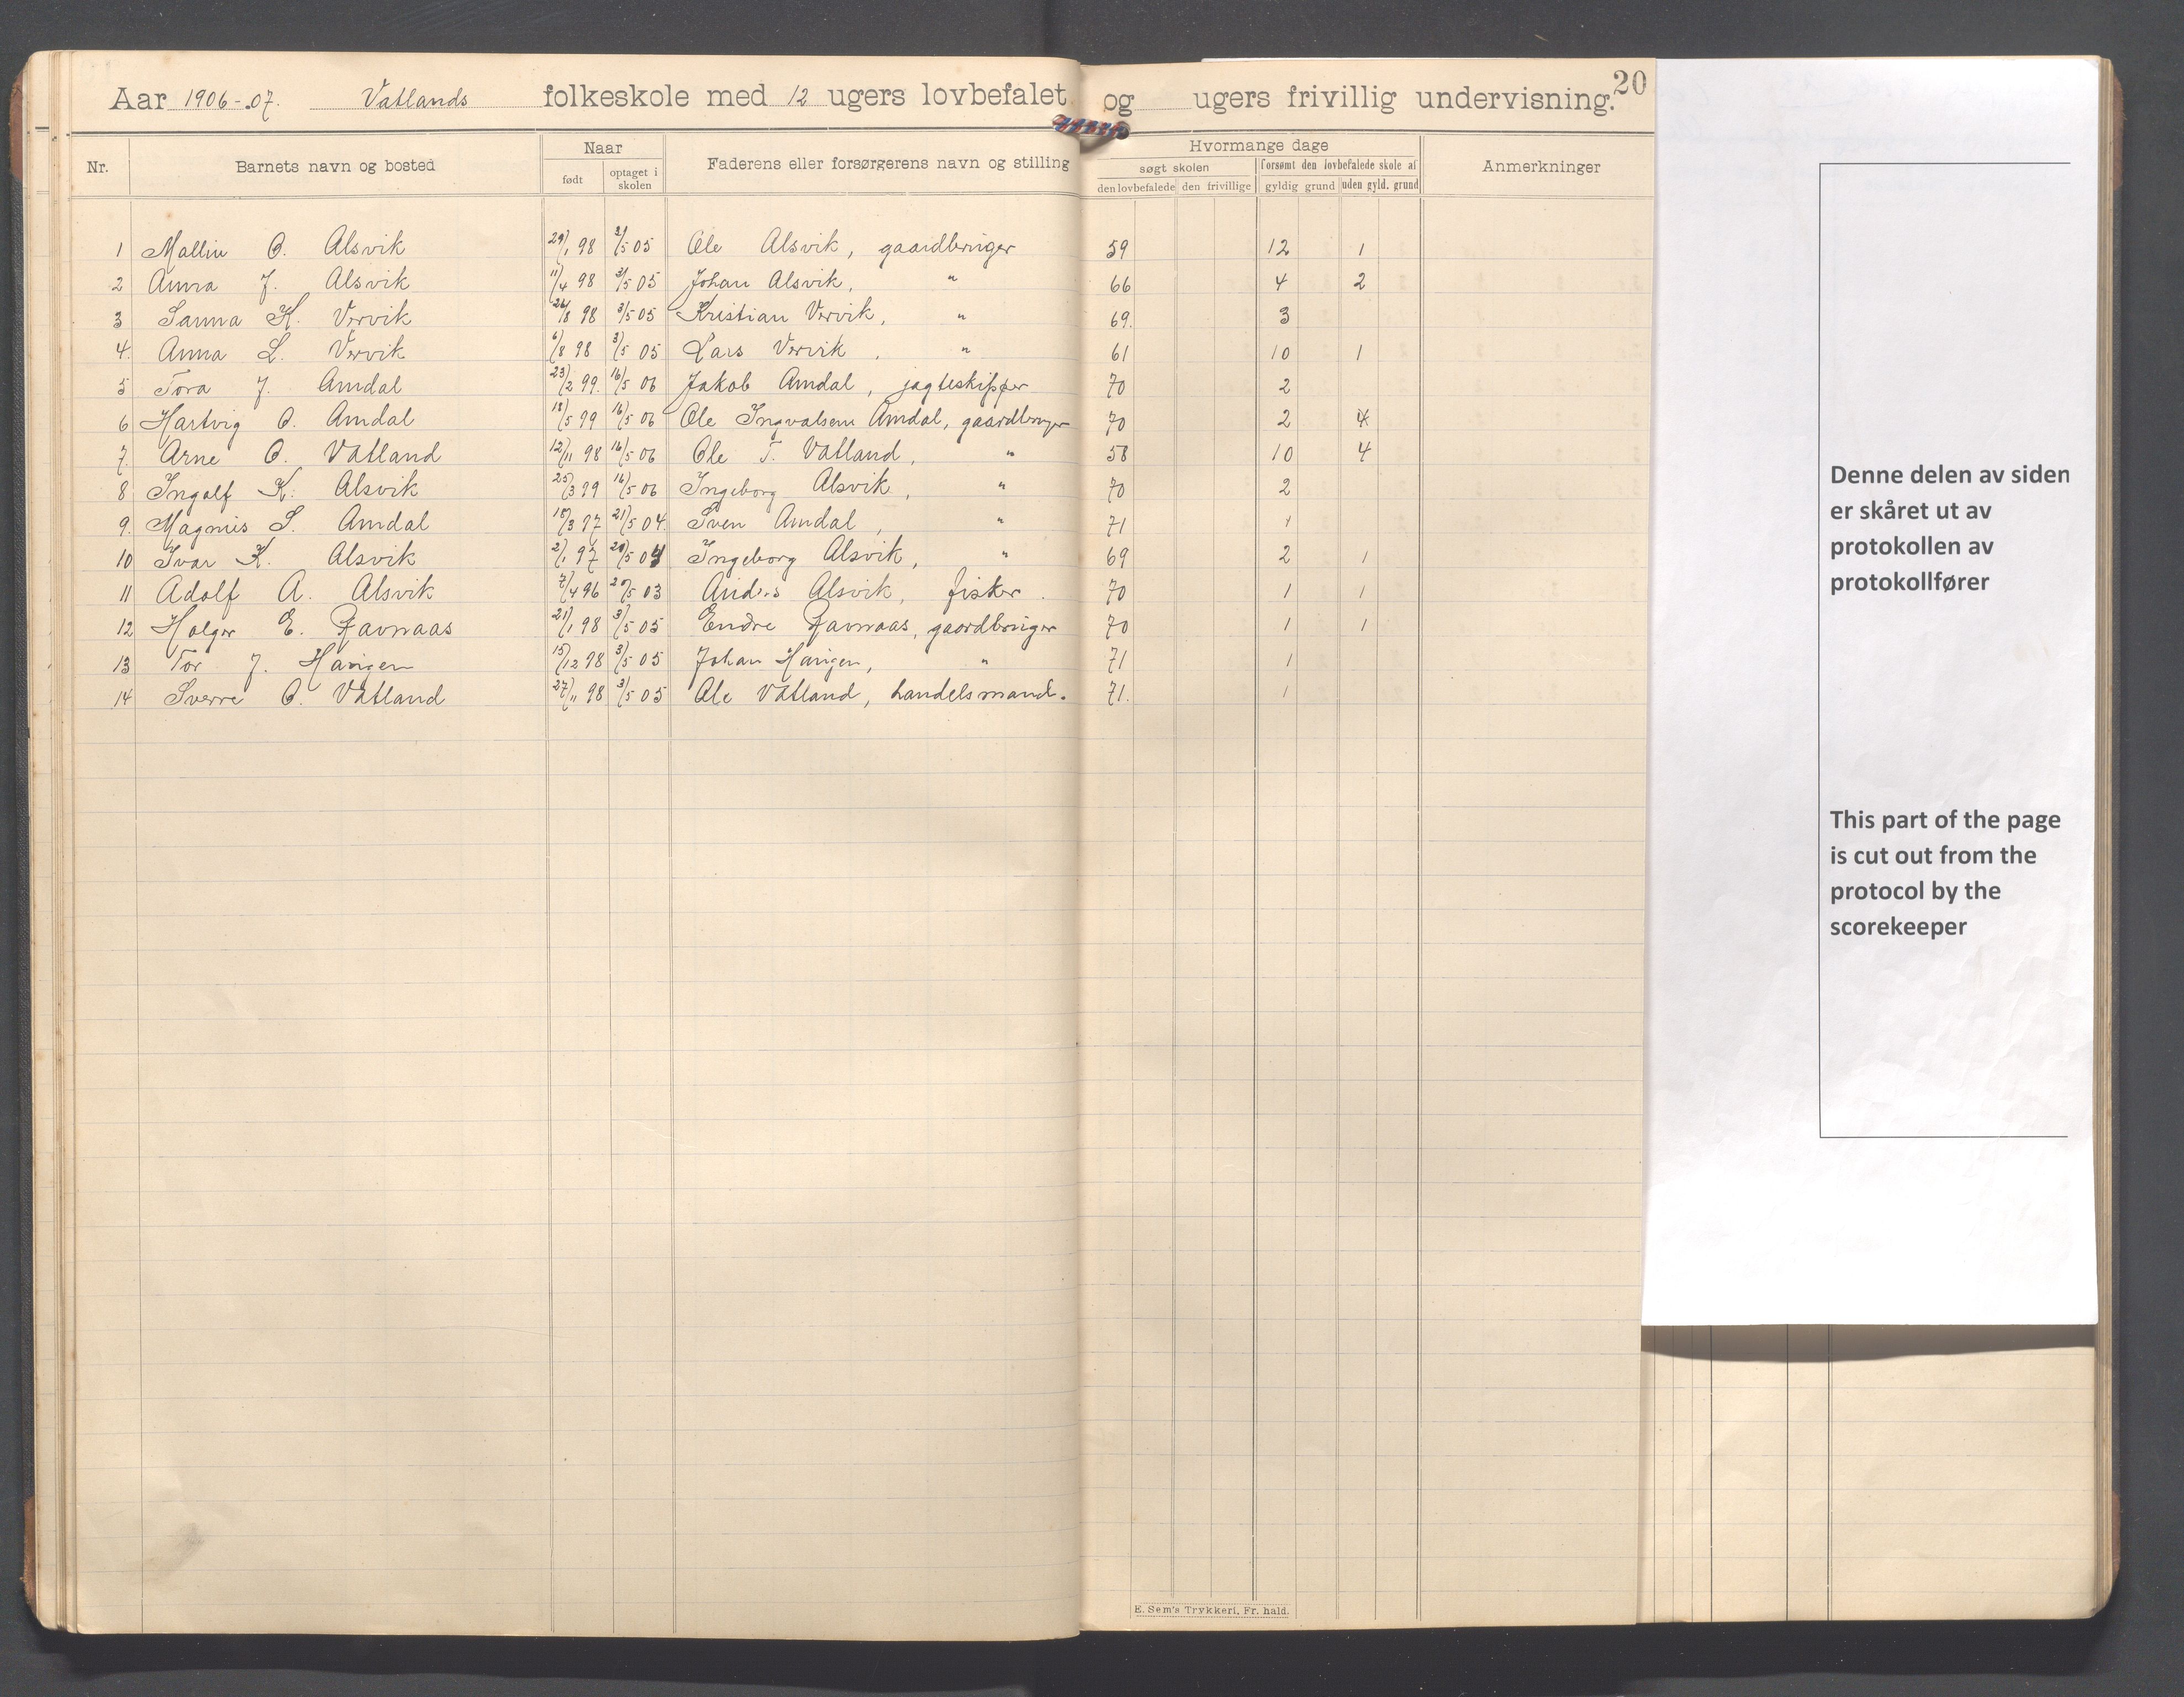 Aar 1906-07. Vatlands folkeskole med 12 ugers lovbefalet og ugers frivillig undervisning. 20
Nr. Barnets navn og bosted Naar Faderens eller forsørgerens navn og stilling Hvormange dage Anmerkninger
født optaget i skolen søgt skolen forsømt den lovbefalede skole af
den lovbefalede den frivillige gyldig grund uden gyld. grund
1 Mallin O. Alsvik 29/1 98 3/5 05 Ole Alsvik, gaardbruger 59 12 1
2 Anna J. Alsvik 11/4 98 3/5 05 Johan Alsvik, " 66 4 2
3 Sanna K. Vervik 26/8 98 3/5 05 Kristian Vervik, " 69. 3
4. Anna L. Vervik 6/8 98 3/5 05 Lars Vervik, " 61 10 1
5 Tora J. Amdal 23/2 99. 16/5 06 Jakob Amdal, jagteskipper 70 2
6 Hartvig O. Amdal 18/5 99 16/5 06 Ole Ingvalsen Amdal, gaardbruger 70 2
7. Arne O. Vatland 12/11 98 16/5 06 Ole T. Vatland, " 58 10 4
8 Ingolf K. Alsvik 25/3 99 16/5 06 Ingeborg Alsvik, " 70 2
9. Magnus S. Amdal 18/3 97 21/5 04. Sven Amdal, " 71 1
10 Ivar K. Alsvik 2/1 97 20/5 04 Ingeborg Alsvik, " 69 2 1
11 Adolf A. Alsvik 7/4 96 20/5 03 Anders Alsvik, fisker. 70 1 1
12 Holger E. Ravnaas 21/1 98 3/5 05 Endre Ravnaas, gaardbruger 70 1 1
13 Tor J. Havigen 15/12 98 3/5 05 Johan Havigen, " 71 1
14 Sverre O. Vatland 27/11 98 3/5 05 Ole Vatland, handelsmand. 71. 1
E. Sem's Trykkeri, Fr. hald.
Denne delen av siden
er skåret ut av
protokollen av
protokollfører
This part of the page
is cut out from the
protocol by the
scorekeeper